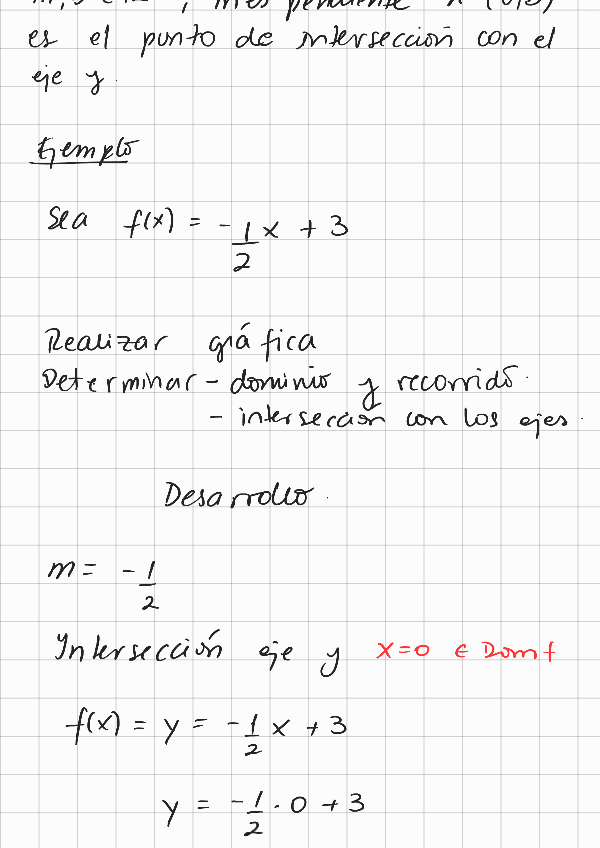 es el punto de intersección con el
eje y.
Ejemplo
Sea f(x) = -1/2 x + 3
Realizar gráfica
Determinar - dominio y recorrido.
- intersección con los ejes.
Desarrollo.
m = -1/2
Intersección eje y x=0 ∈ Dom f
f(x) = y = -1/2 x + 3
y = -1/2 · 0 + 3